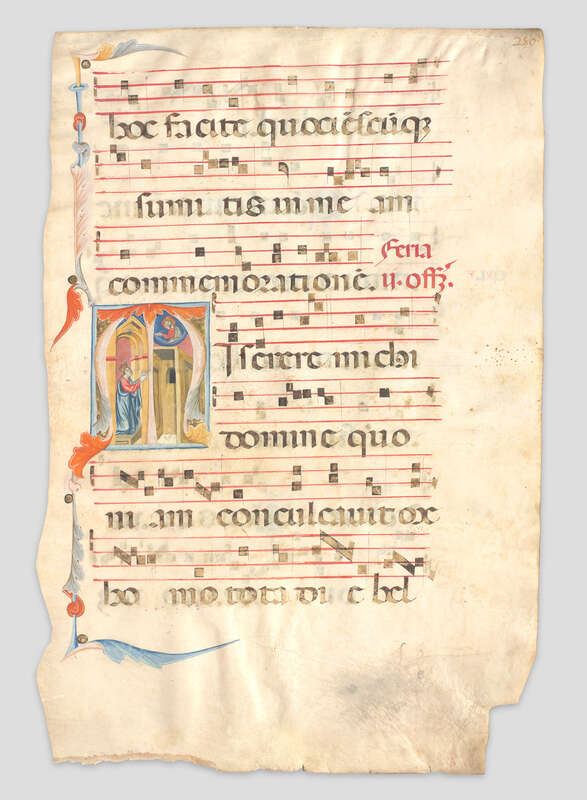 280
hoc facite quocie͂scu͂q
sumi tis in me am
commemoratione͂. Feria
ii. offr̄.
M Iserere michi
domine quo
ni am conculcavit me
ho mo tota di e bel